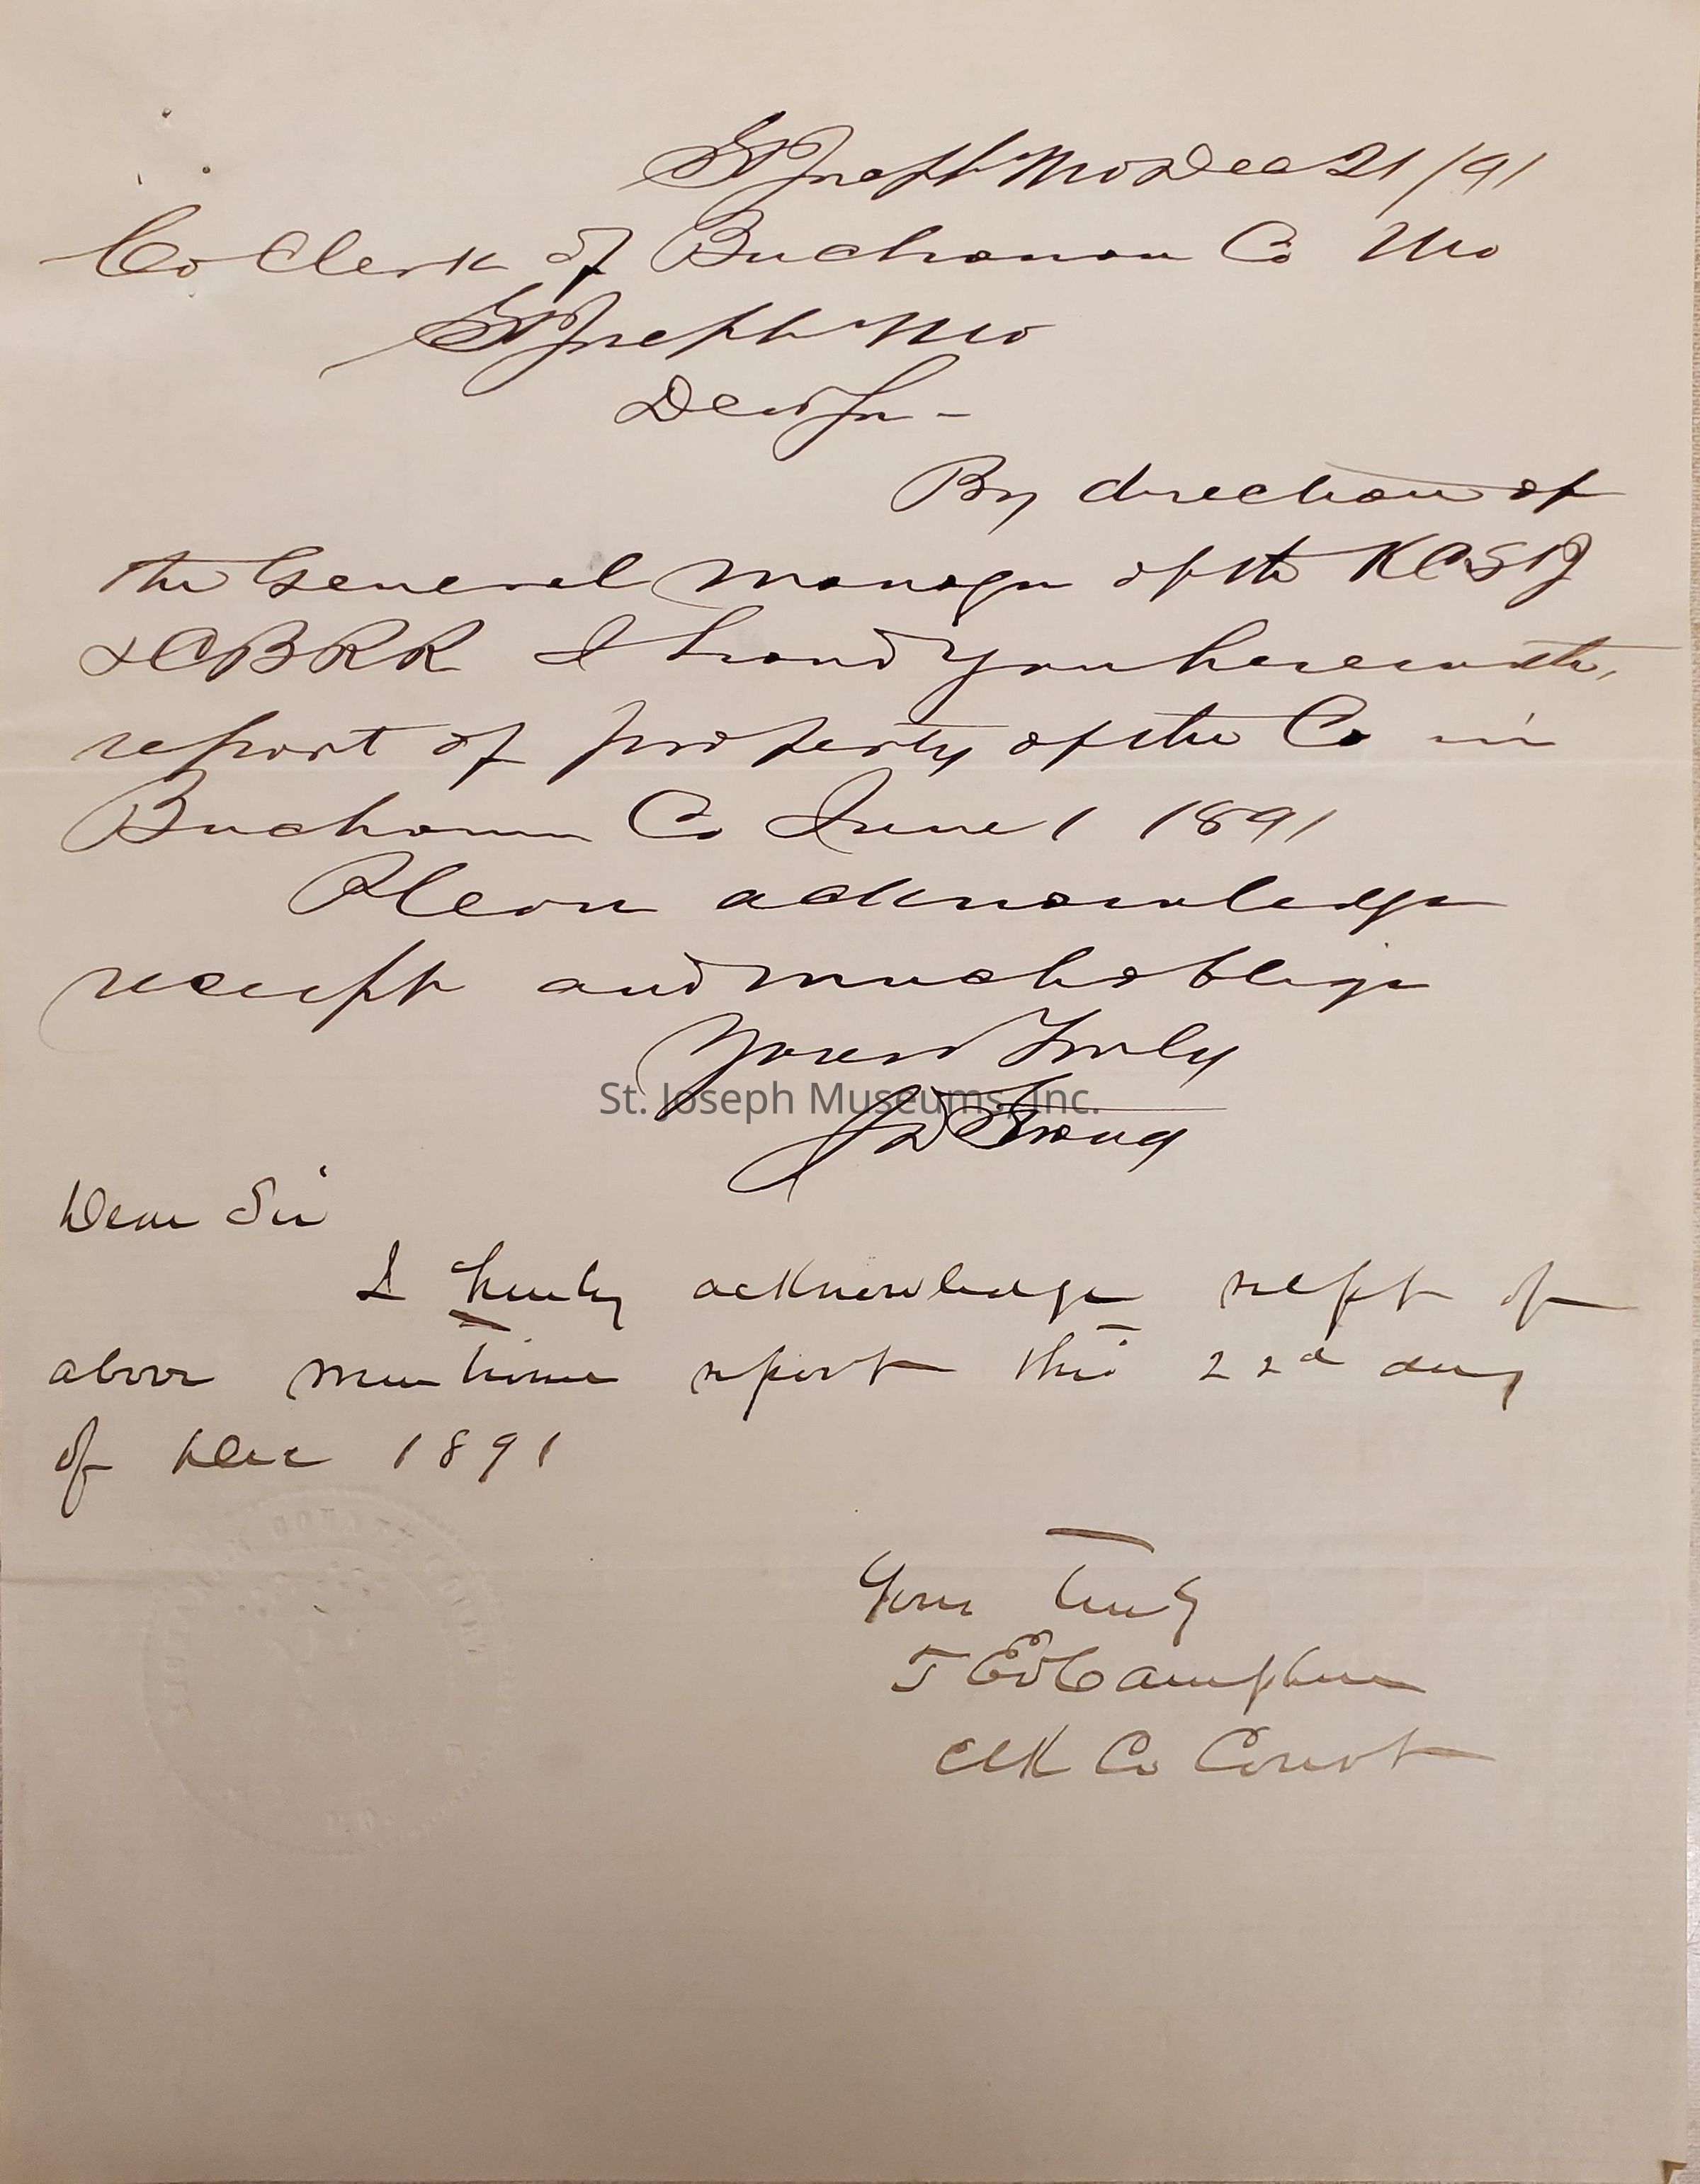 St Joseph Mo Dec 21/91
Co Clerk of Buchanan Co Mo
St Joseph Mo
Dear Sir -
By direction of
the General Manager of the KCStJ
& CBRR I hand you herewith,
report of property of the Co in
Buchanan Co June 1 1891
Please acknowledge
receipt and much oblige
Yours Truly
St. Joseph Museums, Inc.
Strong
Dear Sir
I hereby acknowledge recpt of
above mentioned report this 22d day
of Dec 1891
Yours Truly
T Ed Campbell
Clk Co Court